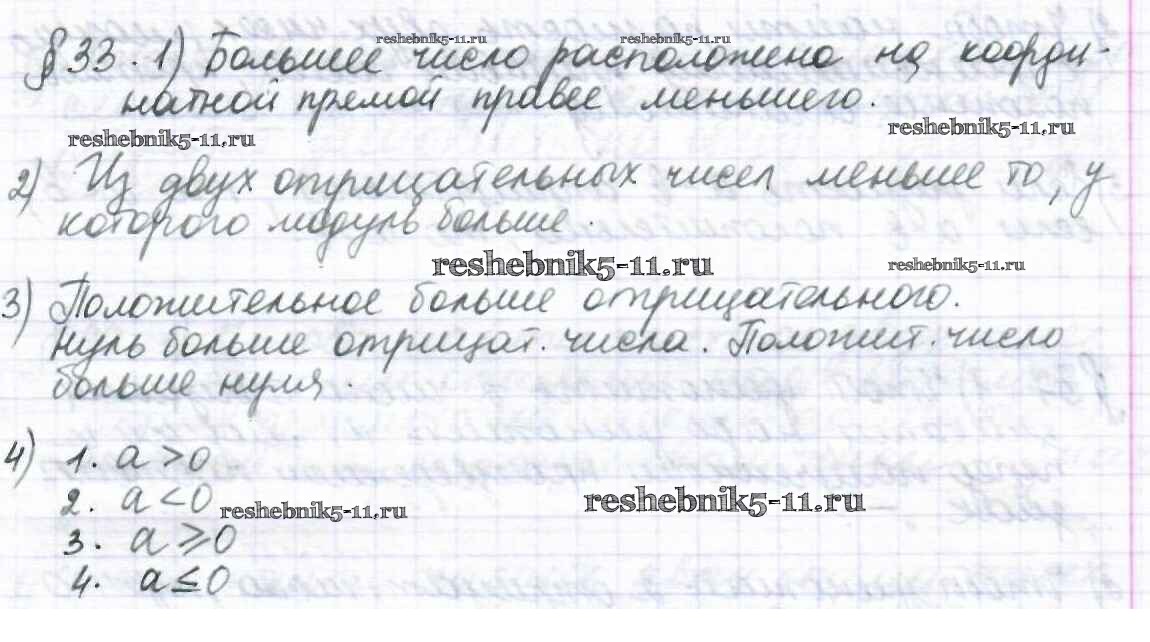 reshebnik5-11.ru reshebnik5-11.ru
§ 33. 1) Большее число расположено на коорди-
натной прямой правее меньшего.
reshebnik5-11.ru reshebnik5-11.ru
2) Из двух отрицательных чисел меньше то, у
которого модуль больше.
reshebnik5-11.ru reshebnik5-11.ru
3) Положительное больше отрицательного.
Нуль больше отрицат. числа. Положит. число
больше нуля.
4) 1. a > 0
2. a < 0 reshebnik5-11.ru reshebnik5-11.ru
3. a ⩾ 0
4. a ≤ 0